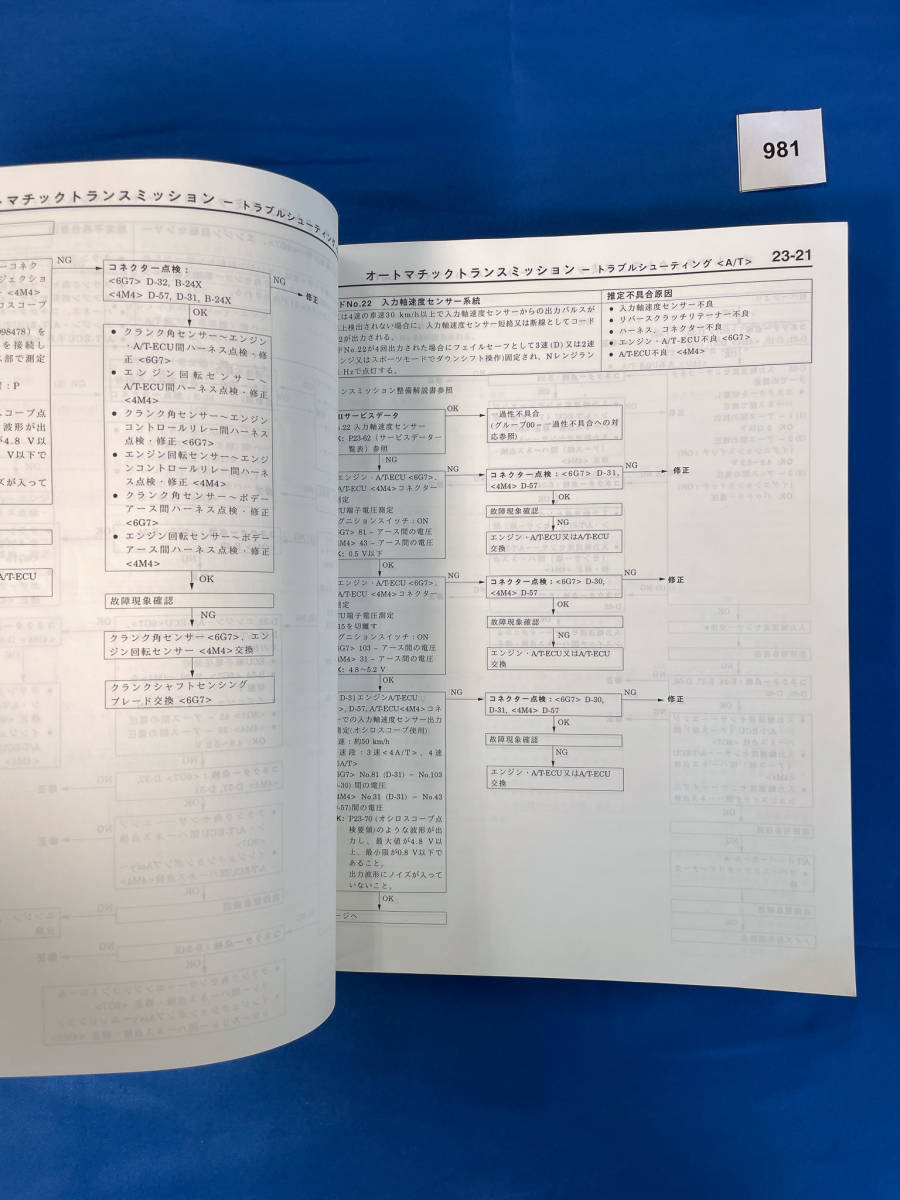 981
トマチックトランスミッション − トラブルシューティング
ーコネク
ジェクショ
<4M4>
ロスコープ
098478）を
を接続し
ス部で測定
：P
コープ点
波形が出
4.8 V以
V以下で
ズが入って
A/T-ECU
NG
コネクター点検：
<6G7> D-32, B-24X
<4M4> D-57, D-31, B-24X
NG
修正
OK
● クランク角センサー〜エンジン
・A/T-ECU間ハーネス点検・修
正 <6G7>
● エンジン回転センサー〜
A/T-ECU間ハーネス点検・修正
<4M4>
● クランク角センサー〜エンジン
コントロールリレー間ハーネス
点検・修正 <6G7>
● エンジン回転センサー〜エンジ
ンコントロールリレー間ハーネ
ス点検・修正 <4M4>
● クランク角センサー〜ボデー
アース間ハーネス点検・修正
<6G7>
● エンジン回転センサー〜ボデー
アース間ハーネス点検・修正
<4M4>
OK
故障現象確認
NG
クランク角センサー<6G7>、エン
ジン回転センサー <4M4>交換
クランクシャフトセンシング
ブレード交換 <6G7>
オートマチックトランスミッション − トラブルシューティング <A/T>
23-21
ドNo.22 入力軸速度センサー系統
又は4速の車速30 km/h以上で入力軸速度センサーからの出力パルスが
上検出されない場合に、入力軸速度センサー短絡又は断線としてコード
2が出力される。
ドNo.22が4回出力された場合にフェイルセーフとして3速（D）又は2速
ンジ又はスポーツモードでダウンシフト操作）固定され、Nレンジラン
Hzで点灯する。
推定不具合原因
● 入力軸速度センサー不良
● リバースクラッチリテーナー不良
● ハーネス、コネクター不良
● エンジン・A/T-ECU不良 <6G7>
● A/T-ECU不良 <4M4>
ンスミッション整備解説書参照
IIサービスデータ
.22 入力軸速度センサー
K: P23-62（サービスデータ一
覧表）参照
OK
一過性不具合
(グループ00−一過性不具合への対
応参照)
NG
エンジン・A/T-ECU <6G7>、
A/T-ECU <4M4>コネクター
測定
CU端子電圧測定
グニションスイッチ：ON
6G7> 81 − アース間の電圧
4M4> 43 − アース間の電圧
K: 0.5 V以下
NG
コネクター点検：<6G7> D-31,
<4M4> D-57
NG
修正
OK
故障現象確認
NG
エンジン・A/T-ECU又はA/T-ECU
交換
OK
エンジン・A/T-ECU <6G7>、
A/T-ECU <4M4>コネクター
測定
CU端子電圧測定
15を切離す
グニションスイッチ：ON
6G7> 103 − アース間の電圧
4M4> 31 − アース間の電圧
K: 4.8〜5.2 V
NG
コネクター点検：<6G7> D-30,
<4M4> D-57
NG
修正
OK
故障現象確認
NG
エンジン・A/T-ECU又はA/T-ECU
交換
OK
D-31エンジンA/T-ECU
>, D-57, A/T-ECU<4M4>コネ
ーでの入力軸速度センサー出力
測定(オシロスコープ使用)
速：約50 km/h
速段：3速<4A/T>、4速
5A/T>
6G7> No.81 (D-31) − No.103
-30) 間の電圧
4M4> No.31 (D-31) − No.43
-57)間の電圧
K: P23-70 (オシロスコープ点
検要領)のような波形が出
力し、最大値が4.8 V以
上、最小限が0.8 V以下で
あること。
出力波形にノイズが入って
いないこと。
NG
コネクター点検：<6G7> D-30,
D-31, <4M4> D-57
NG
修正
OK
故障現象確認
NG
エンジン・A/T-ECU又はA/T-ECU
交換
OK
ージへ